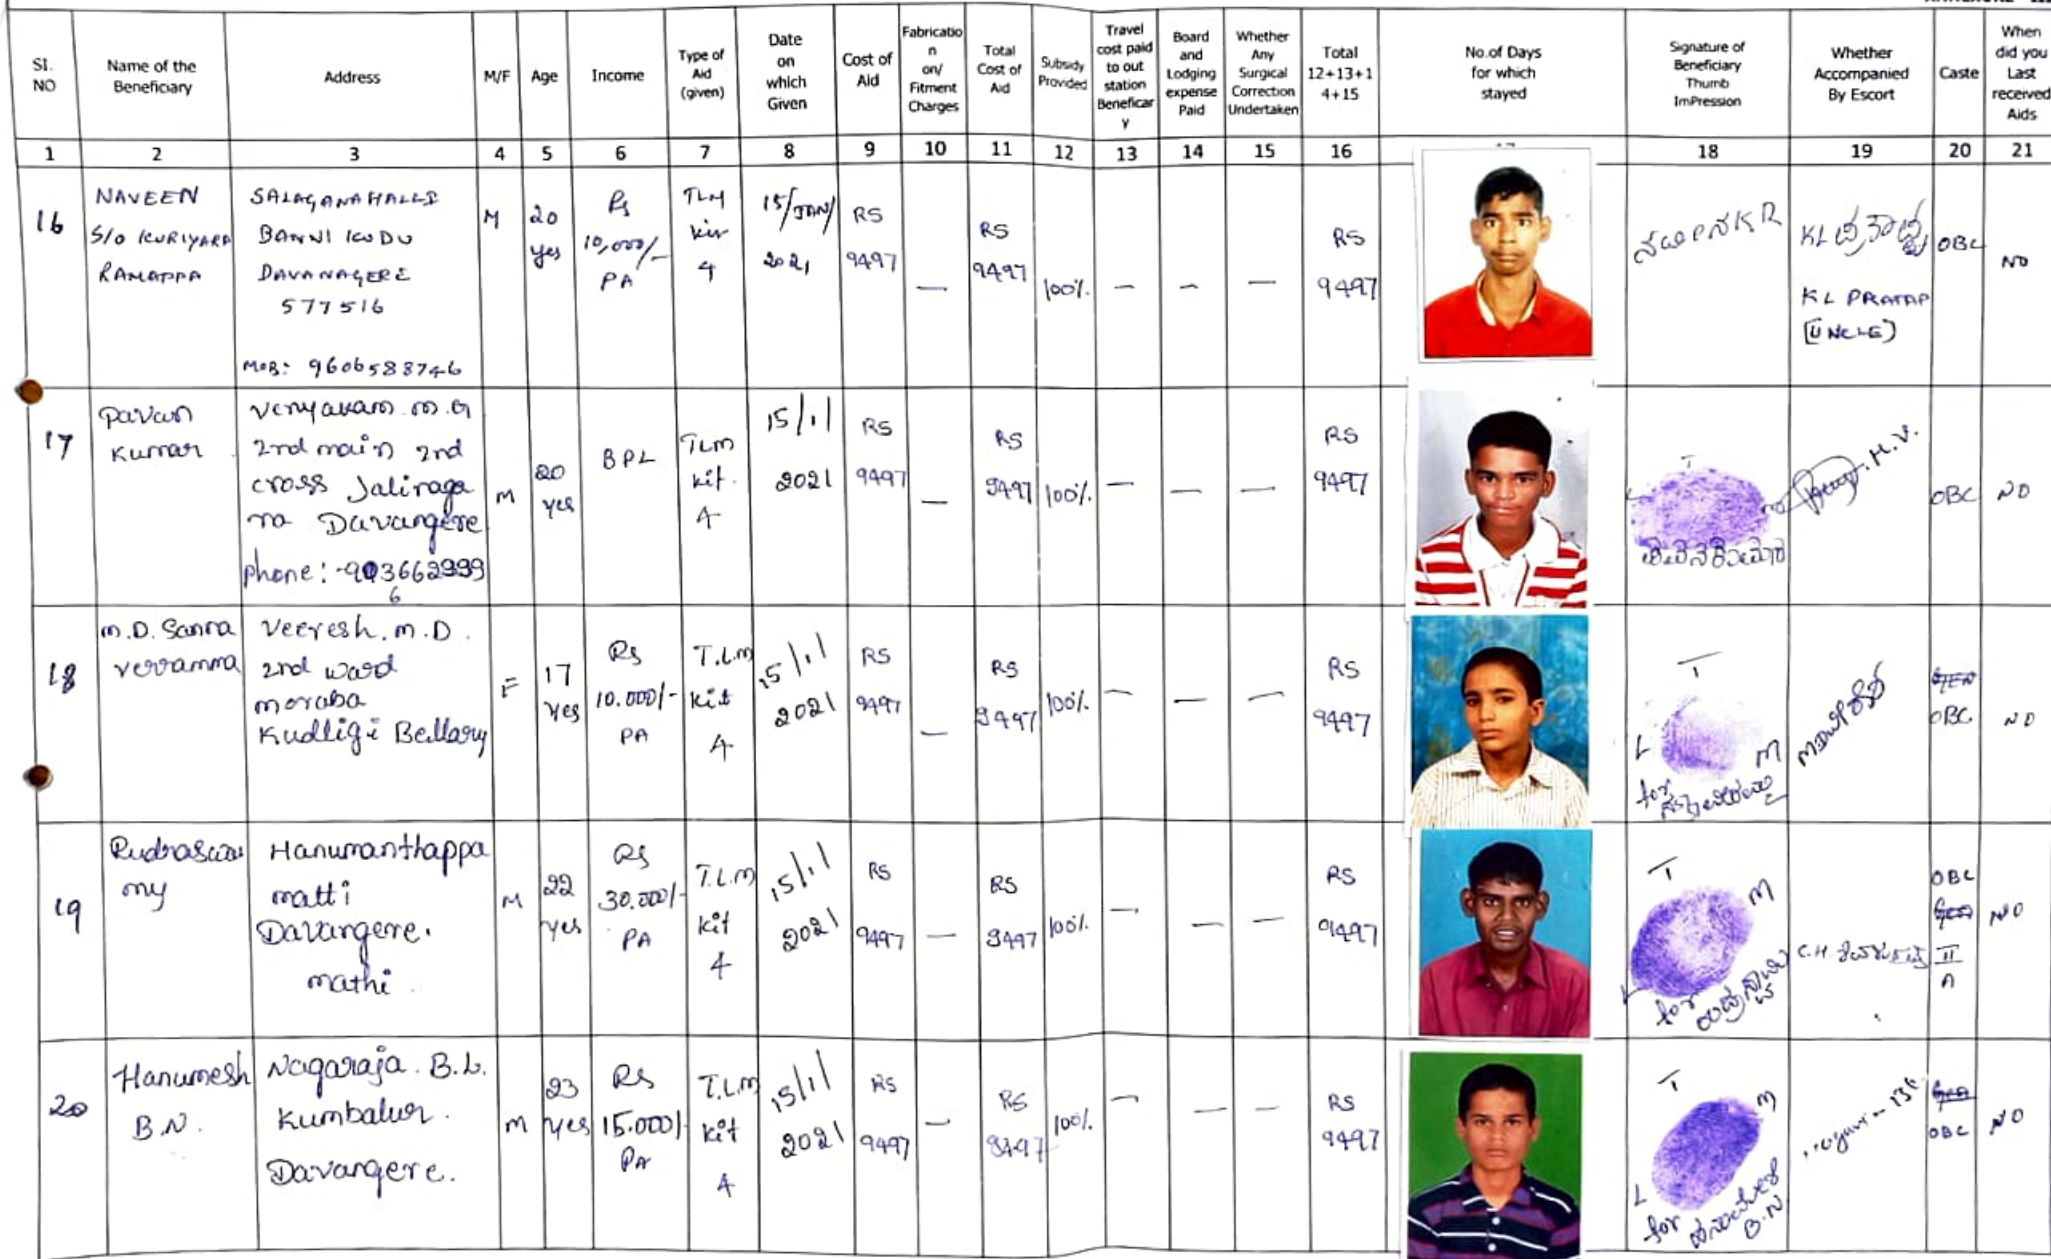 ANNEXURE - III
SI. NO
Name of the Beneficiary
Address
M/F
Age
Income
Type of Aid (given)
Date on which Given
Cost of Aid
Fabricatio n on/ Fitment Charges
Total Cost of Aid
Subsidy Provided
Travel cost paid to out station Beneficar y
Board and Lodging expense Paid
Whether Any Surgical Correction Undertaken
Total 12+13+1 4+15
No.of Days for which stayed
Signature of Beneficiary Thumb ImPression
Whether Accompanied By Escort
Caste
When did you Last received Aids
1 2 3 4 5 6 7 8 9 10 11 12 13 14 15 16 18 19 20 21
16
NAVEEN
S/O KURIYARA
RAMAPPA
SALAGANAHALLI
BANNI KODU
DAVANAGERE
577516
MOB: 9606588746
M
20
yes
Rs
10,000/-
PA
TLM
kit
4
15/JAN/
2021
RS
9497
—
RS
9497
100%
—
—
—
RS
9497
ನವೀನ K R
KL ಪ್ರತಾಪ್
KL PRATAP
(UNCLE)
OBC
NO
17
Pavan
Kumar
m.G
2nd main 2nd
cross Jalinaga
ra Davangere
phone:-
M
20
yes
BPL
TLM
kit.
4
15/1/
2021
RS
9497
—
RS
9497
100%
—
—
—
RS
9497
T
L
ಪವನಕುಮಾರ
H.V.
OBC
NO
18
m.D. Sanna
verramma
Veeresh.m.D.
2nd ward
moraba
Kudligi Bellary
F
17
yes
Rs
10.000/-
PA
T.L.M
kit
4
15/1/
2021
RS
9497
—
RS
9497
100%
—
—
—
RS
9497
T
L
M
for
MDವೀರೇಶ
GEN
OBC
NO
19
Rudraswa
my
Hanumanthappa
matti
Davangere.
mathi.
M
22
yes
Rs
30.000/-
PA
T.L.M
kit
4
15/1/
2021
RS
9497
—
RS
9497
100%
—
—
—
RS
9497
T
L
M
for
ರುದ್ರಸ್ವಾಮಿ
C.H.
OBC
Gen
II
A
NO
20
Hanumesh
B.N.
Nagaraja. B.L.
Kumbalur.
Davangere.
M
23
yes
Rs
15.000/-
PA
T.L.M
kit
4
15/1/
2021
RS
9497
—
RS
9497
100%
—
—
—
RS
9497
T
L
M
for
ಹನುಮೇಶ
B.N
Gen
OBC
NO